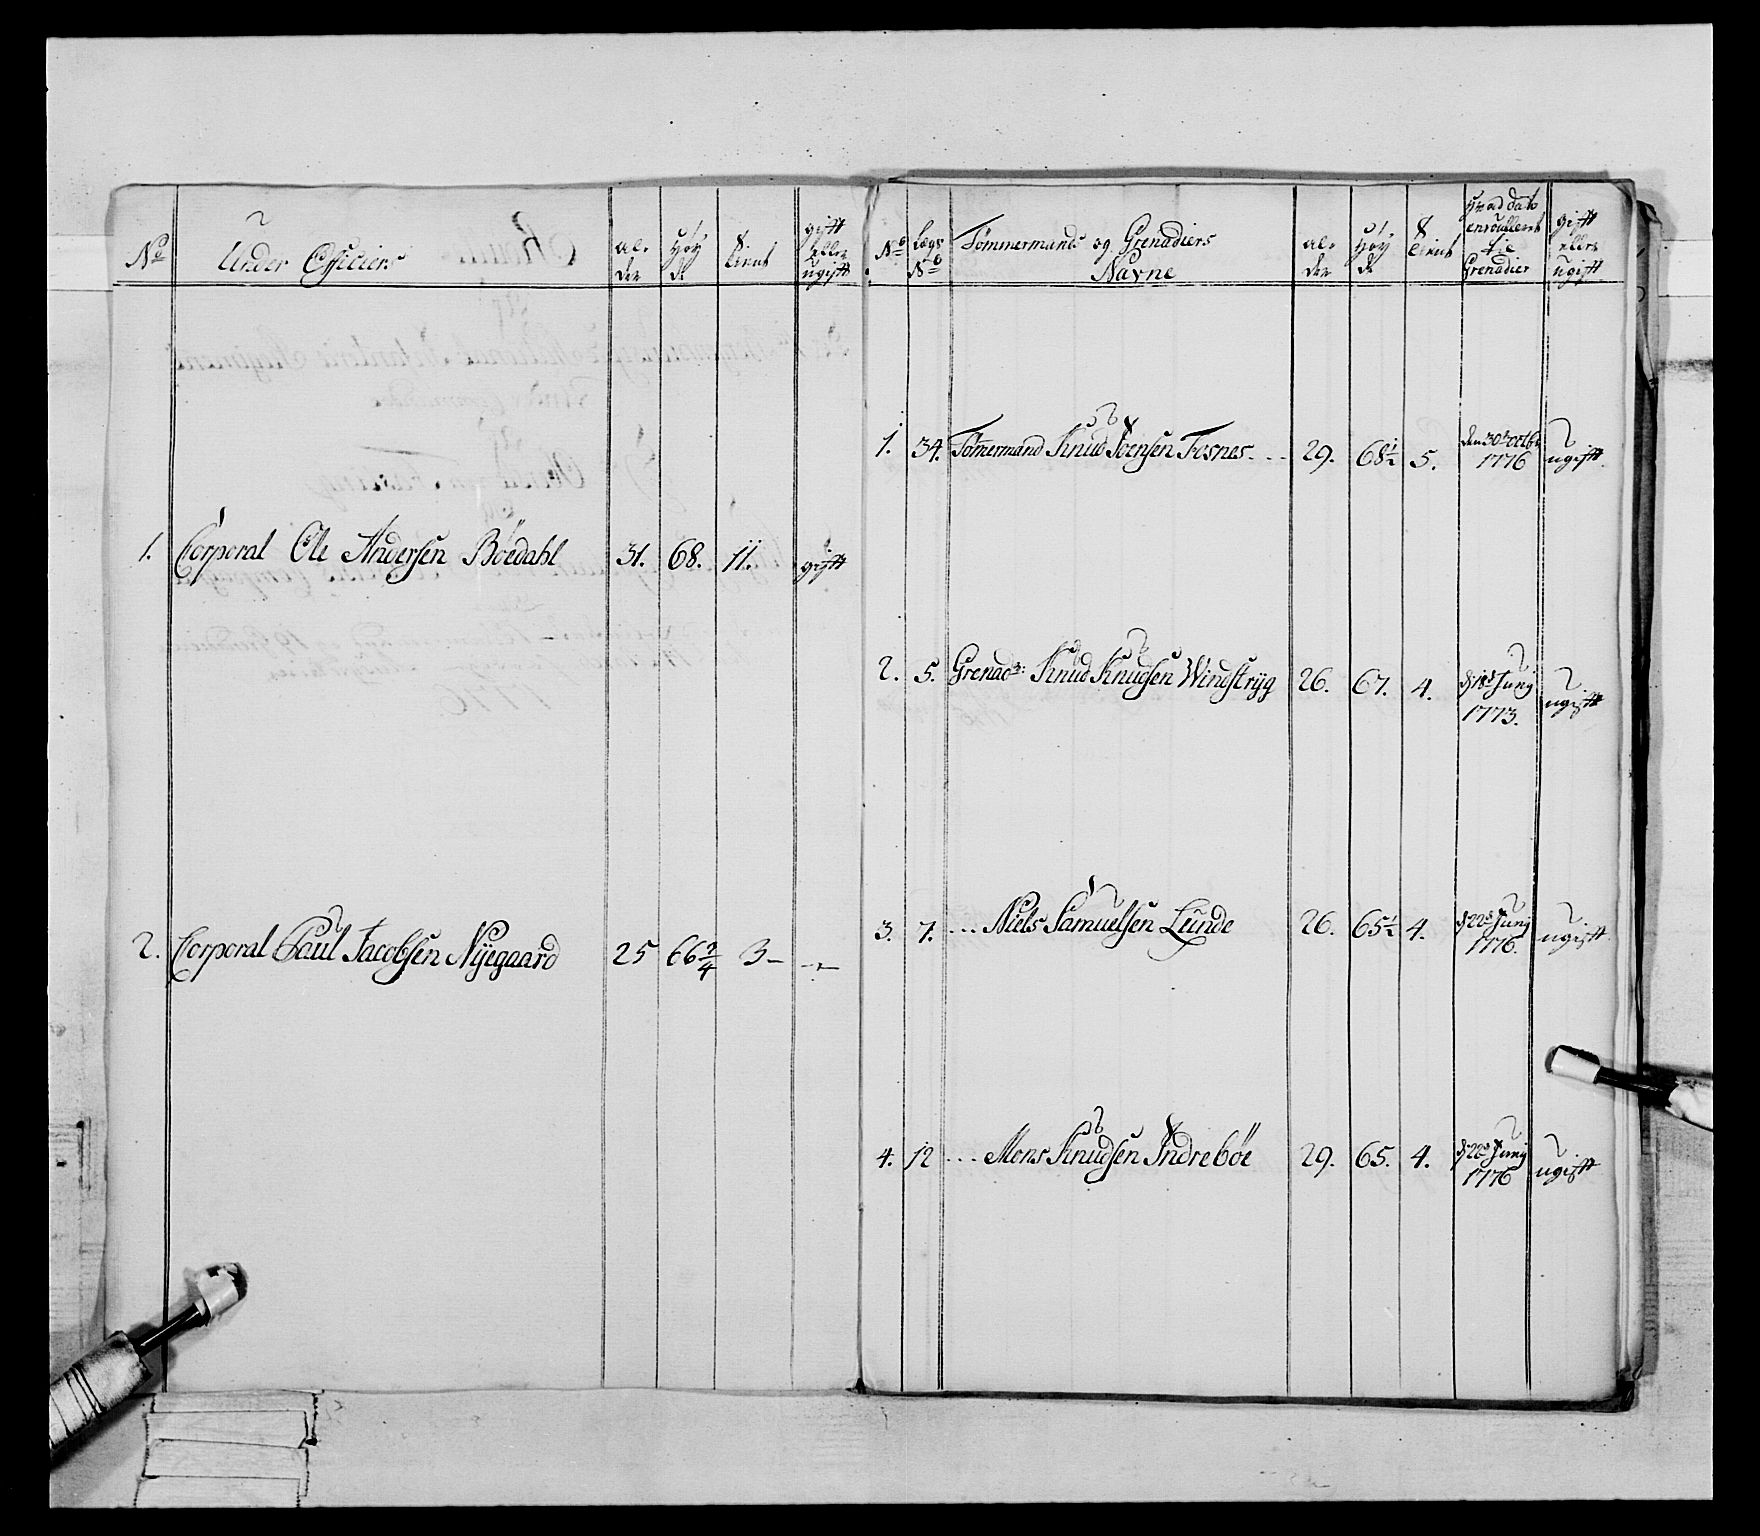 No
Under Officiers
al-
der
Høy
de
tient
gift
eller
ugift
1. Corporal Ole Andersen Böedahl 31. 68. 11. gift
2. Corporal Paul Jacobsen Nÿegaard 25 66 3/4 3 – – –
No
Lægs
No
Tømmermands og Grenadiers
Navne
al-
der
Høy
de
tient
Hvad dato
enroullert
til
Grenadier
gift
eller
ugift
1. 34. Tømermand Knud Joensen Fosnes 29. 68 1/2 5. den 30 Octbr
1776 ugift
2. 5. Grenadr: Knud Knudsen Windstrÿg 26. 67. 4. d 18d Junÿ
1773. ugift
3. 7. Niels Samuelsen Lunde 26. 65 1/2 4. d 22d Junÿ
1776. ugift
4. 12 Mons Knudsen Indrebøe 29. 65. 4. d 22d Junÿ
1776 ugift